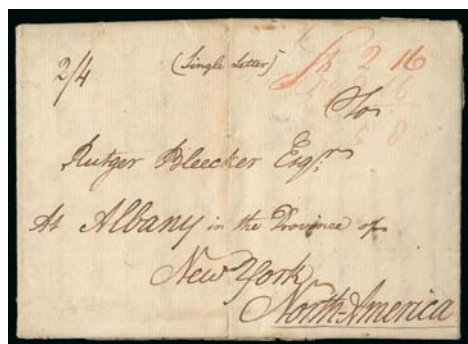 2/4
(Single Letter)
2 16
To
Rutger Bleecker Esqr.
At Albany in the Province of
New York
North-America